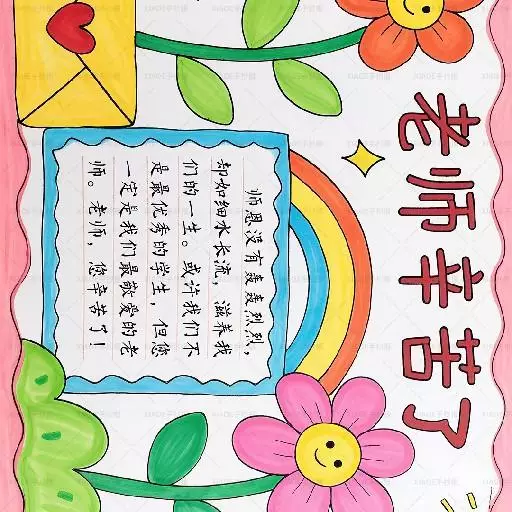 老师辛苦了
师恩没有轰轰烈烈，
却如细水长流，滋养我
们的一生。或许我们不
是最优秀的学生，但您
一定是我们最敬爱的老
师。老师，您辛苦了！